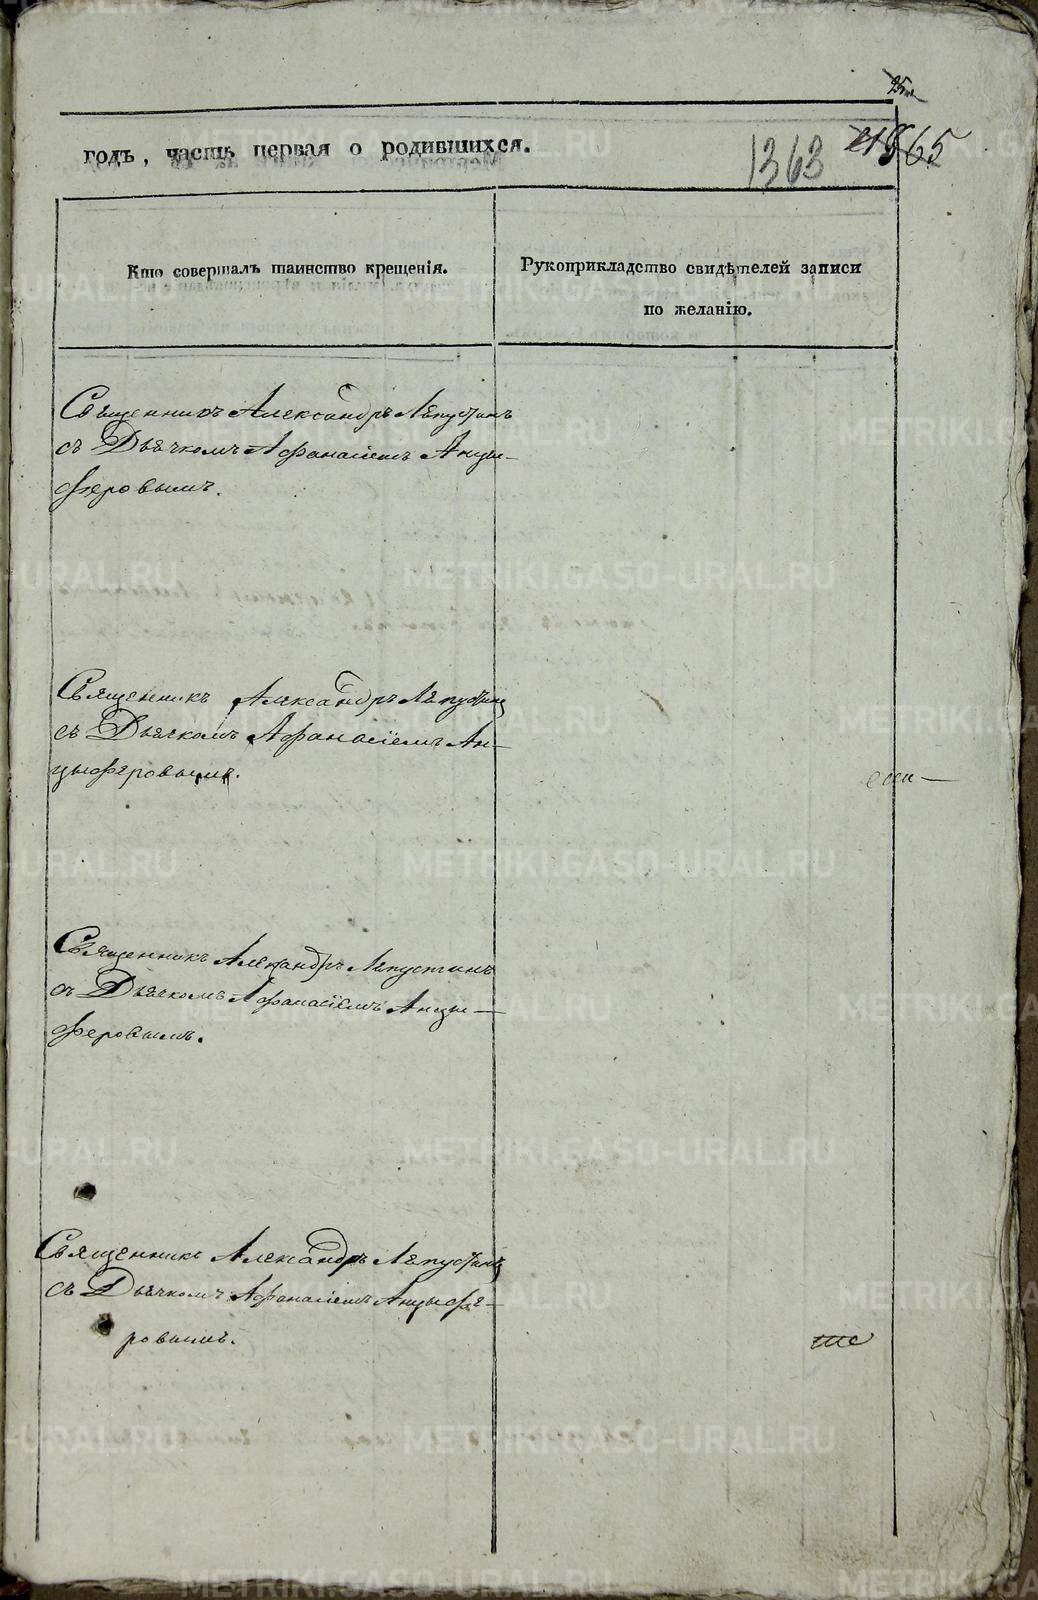 годъ, часть первая о родившихся.
1363
Кто совершалъ таинство крещенія.
Рукоприкладство свидѣтелей записи
по желанію.
Священникъ Александръ Лѣпустинъ
съ Дьячкомъ Афанасіемъ Анцы-
феровымъ.
Священникъ Александръ Лѣпустинъ
съ Дьячкомъ Афанасіемъ Ан-
цыферовымъ.
Священникъ Александръ Лѣпустинъ
съ Дьячкомъ Афанасіемъ Анцы-
феровымъ.
Священникъ Александръ Лѣпустинъ
съ Дьячкомъ Афанасіемъ Анцыфе-
ровымъ.
METRIKI.GASO-URAL.RU